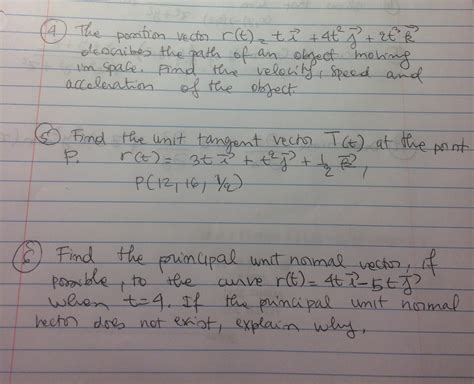 ④ The position vector r(t) = t i⃗ + 4t² j⃗ + 2t² k⃗
describes the path of an object moving
in space. Find the velocity, speed and
acceleration of the object
⑤ Find the unit tangent vector T(t) at the point
P. r(t) = 3t i⃗ + t² j⃗ + 1/2 k⃗,
P(12, 16, 1/2)
⑥ Find the principal unit normal vector, if
possible, to the curve r(t) = 4t i⃗ - 5t j⃗
when t=4. If the principal unit normal
vector does not exist, explain why.